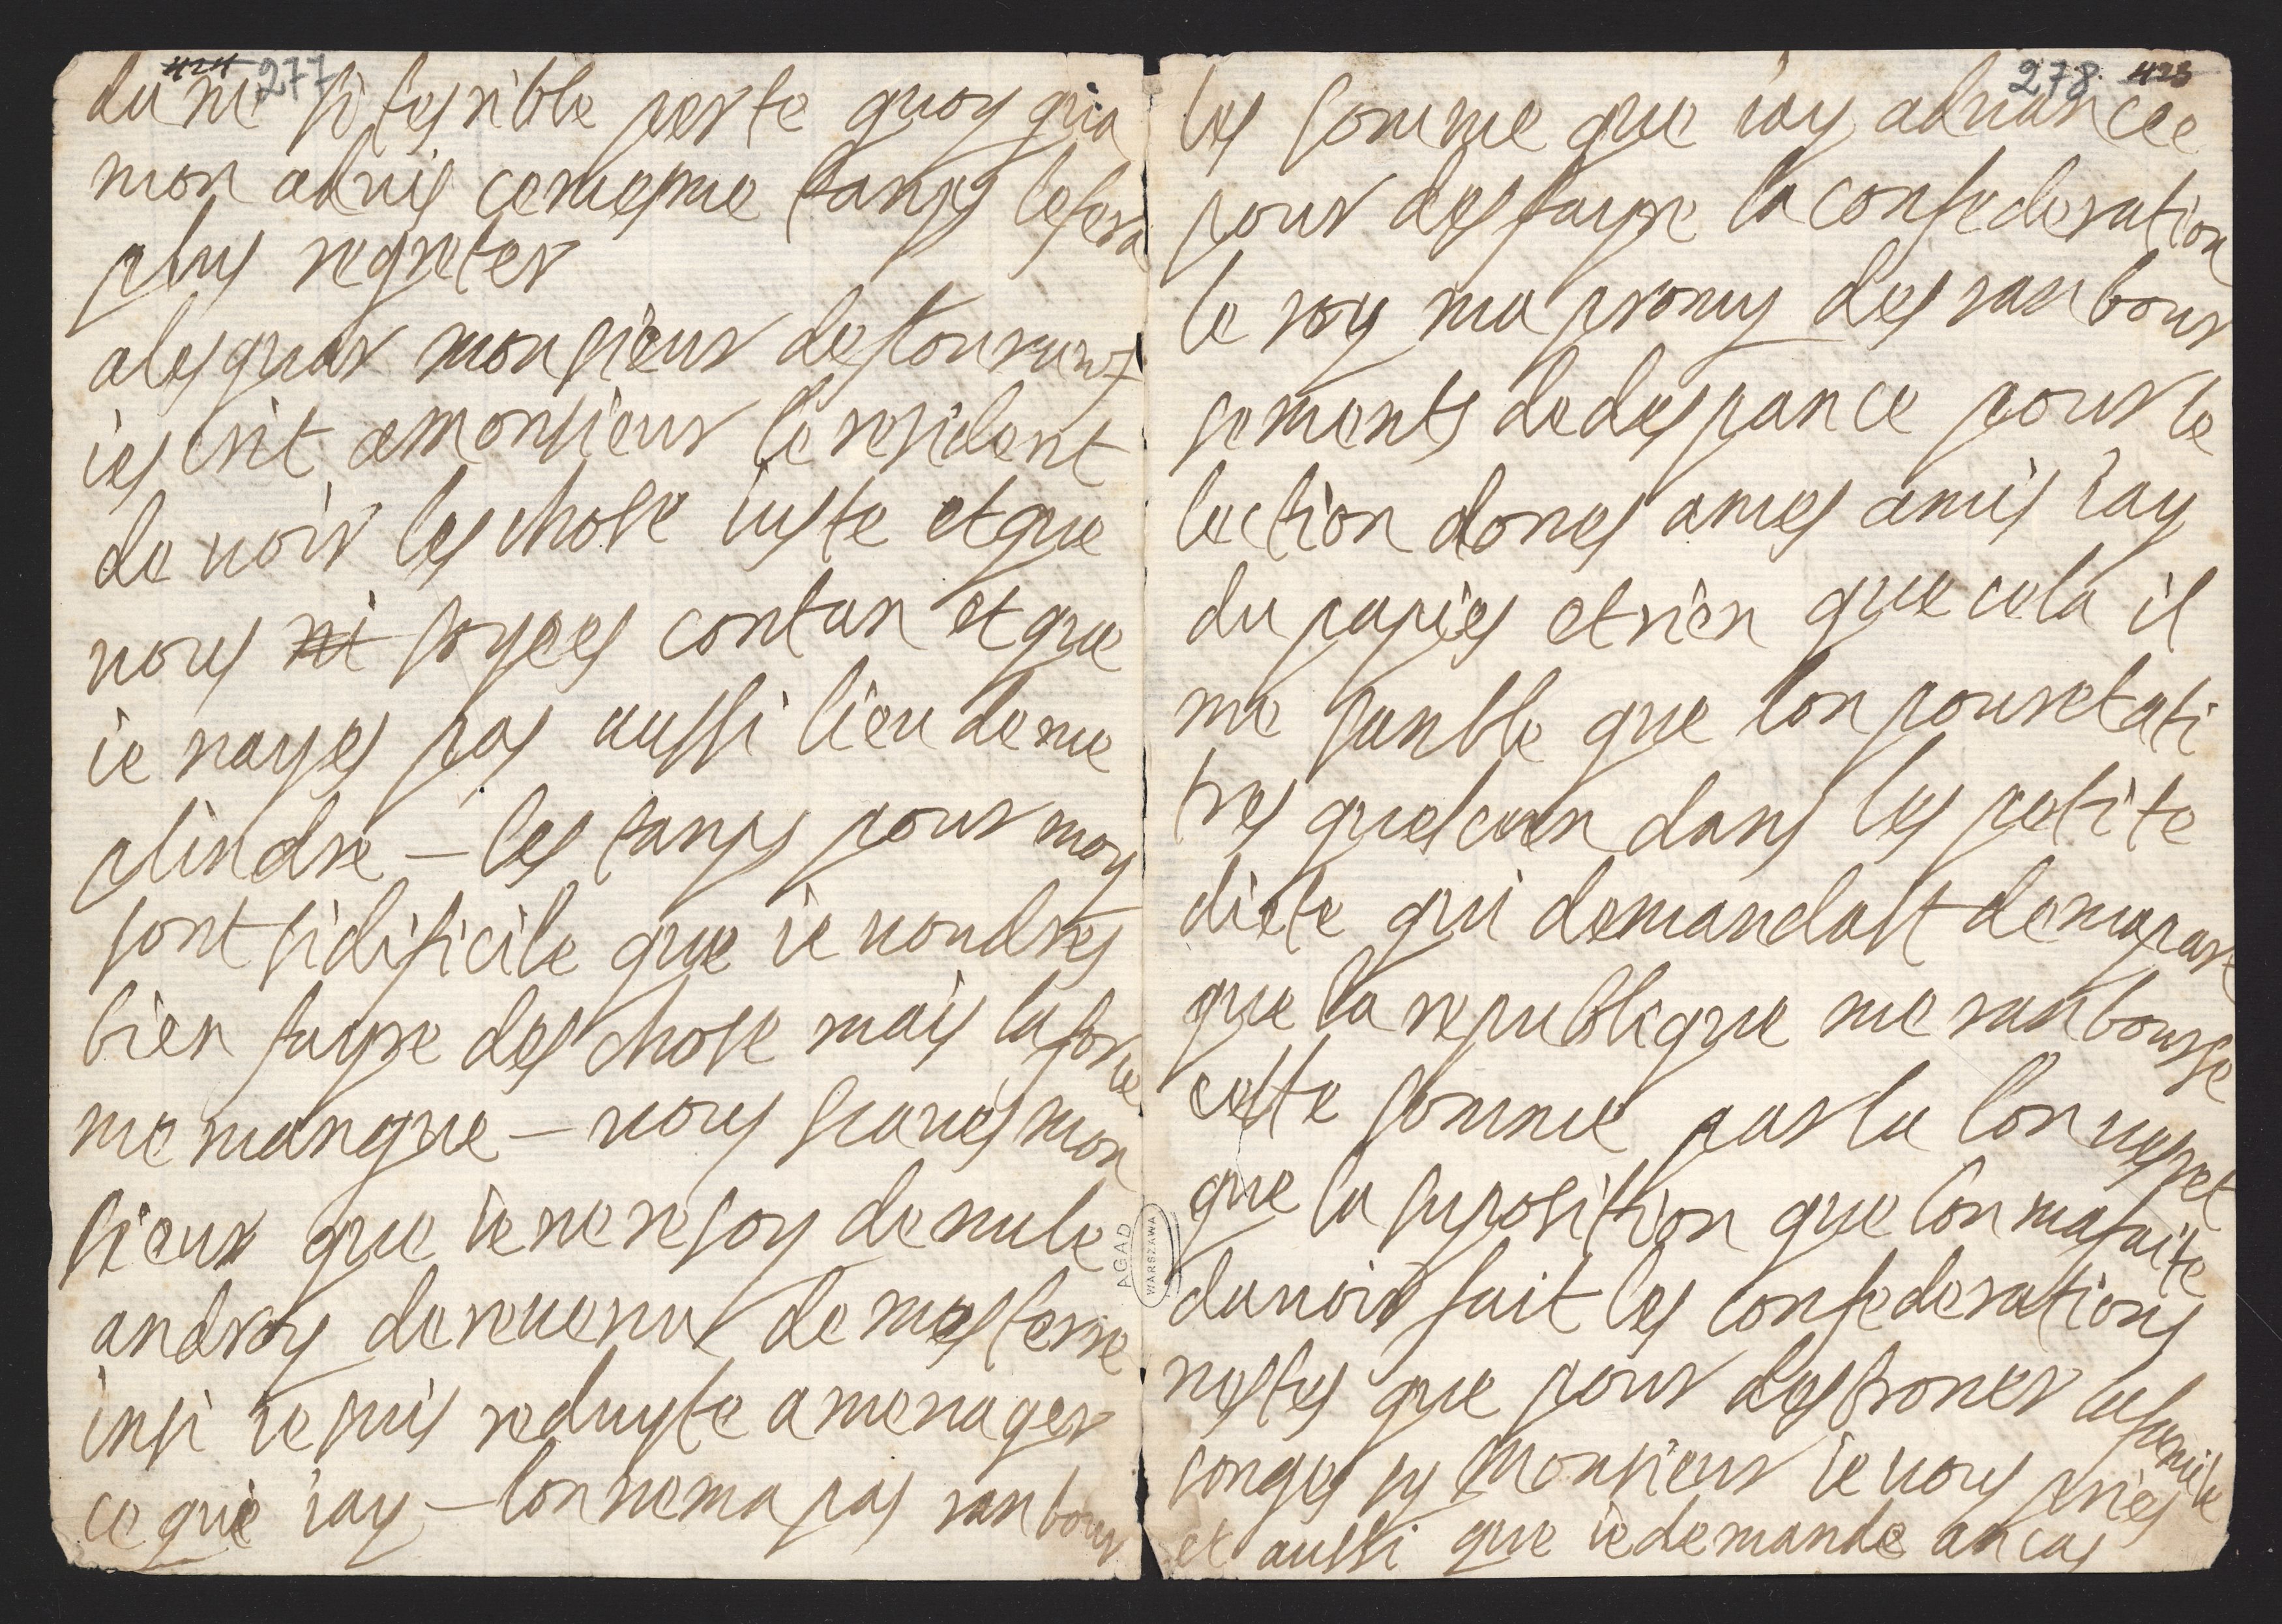 424 277
dune si terible perte quoy qua
mon aduis cemesme tanps lefera
plus regreter
alesguar monsieur
ies crit amonsieur le resident
de uoir les chose iuste et que
uous ni soyees contan et que
ie nayes pas aussi lieu deme
plindre – les tanps pour moy
sont sidificile que ie uoudres
bien fayre des chose mais la force
me manque – uous scaues mon
sieur que ie ne resoy de nule
androy dereuenu de mes terre
insi ie suis reduyte amenager
ce que iay – lon nema pas ranbour
278 423
les somme que iay aduancee
pour desfayre la confederation
le roy ma promis des ranbour
sements dedespance pour le
lection dones ames amis iay
du papies et rien que cela il
me sanble que lon pouret ati
tres quelcun dans les petite
diete qui demandast demapart
que la republique me ranbourse
ceste somme par la lon uespret
que la suposition que lon mafaite
dauoir fait les confederations
nestes que pour destroner lafamile
songes sy Monsieur ie uous pries
et aussi que iedemande ancas
AGAD
WARSZAWA